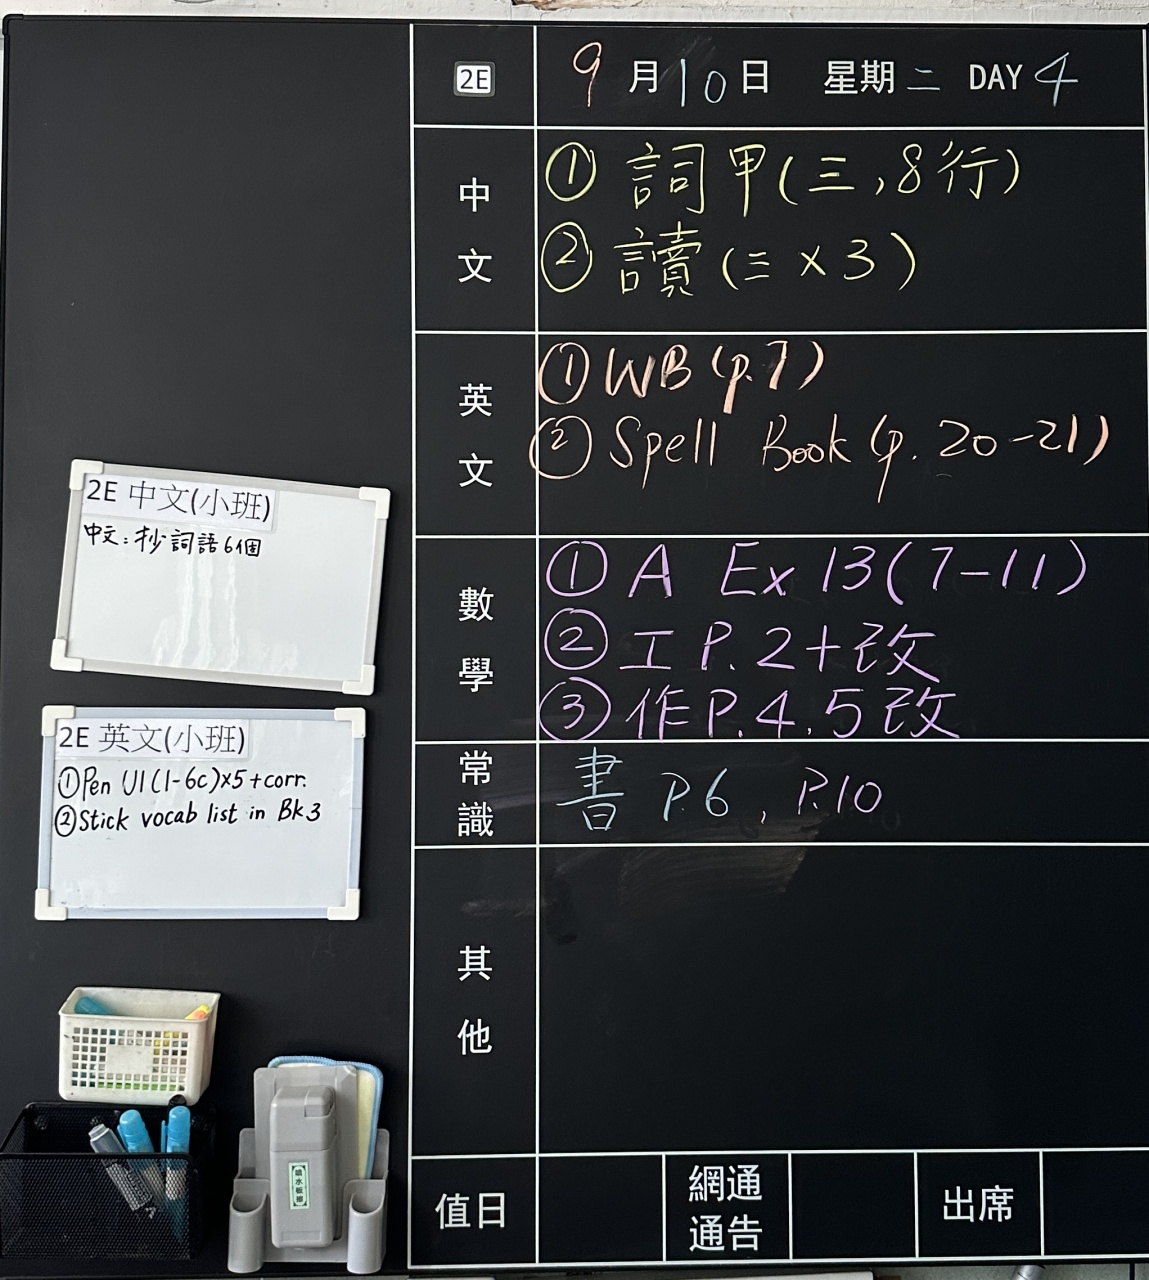 2E 9月10日 星期二 DAY 4
中文
① 詞甲(三,8行)
② 讀(三×3)
英文
① WB (p.7)
② Spell Book (p. 20-21)
數學
① A Ex 13(7-11)
② 工 P.2+改
③ 作P.4,5改
常識
書 P.6, P.10
其他
值日
網通通告
出席
2E 中文(小班)
中文:抄詞語6個
2E 英文(小班)
①Pen U1(1-6c)×5+corr.
②Stick vocab list in Bk3